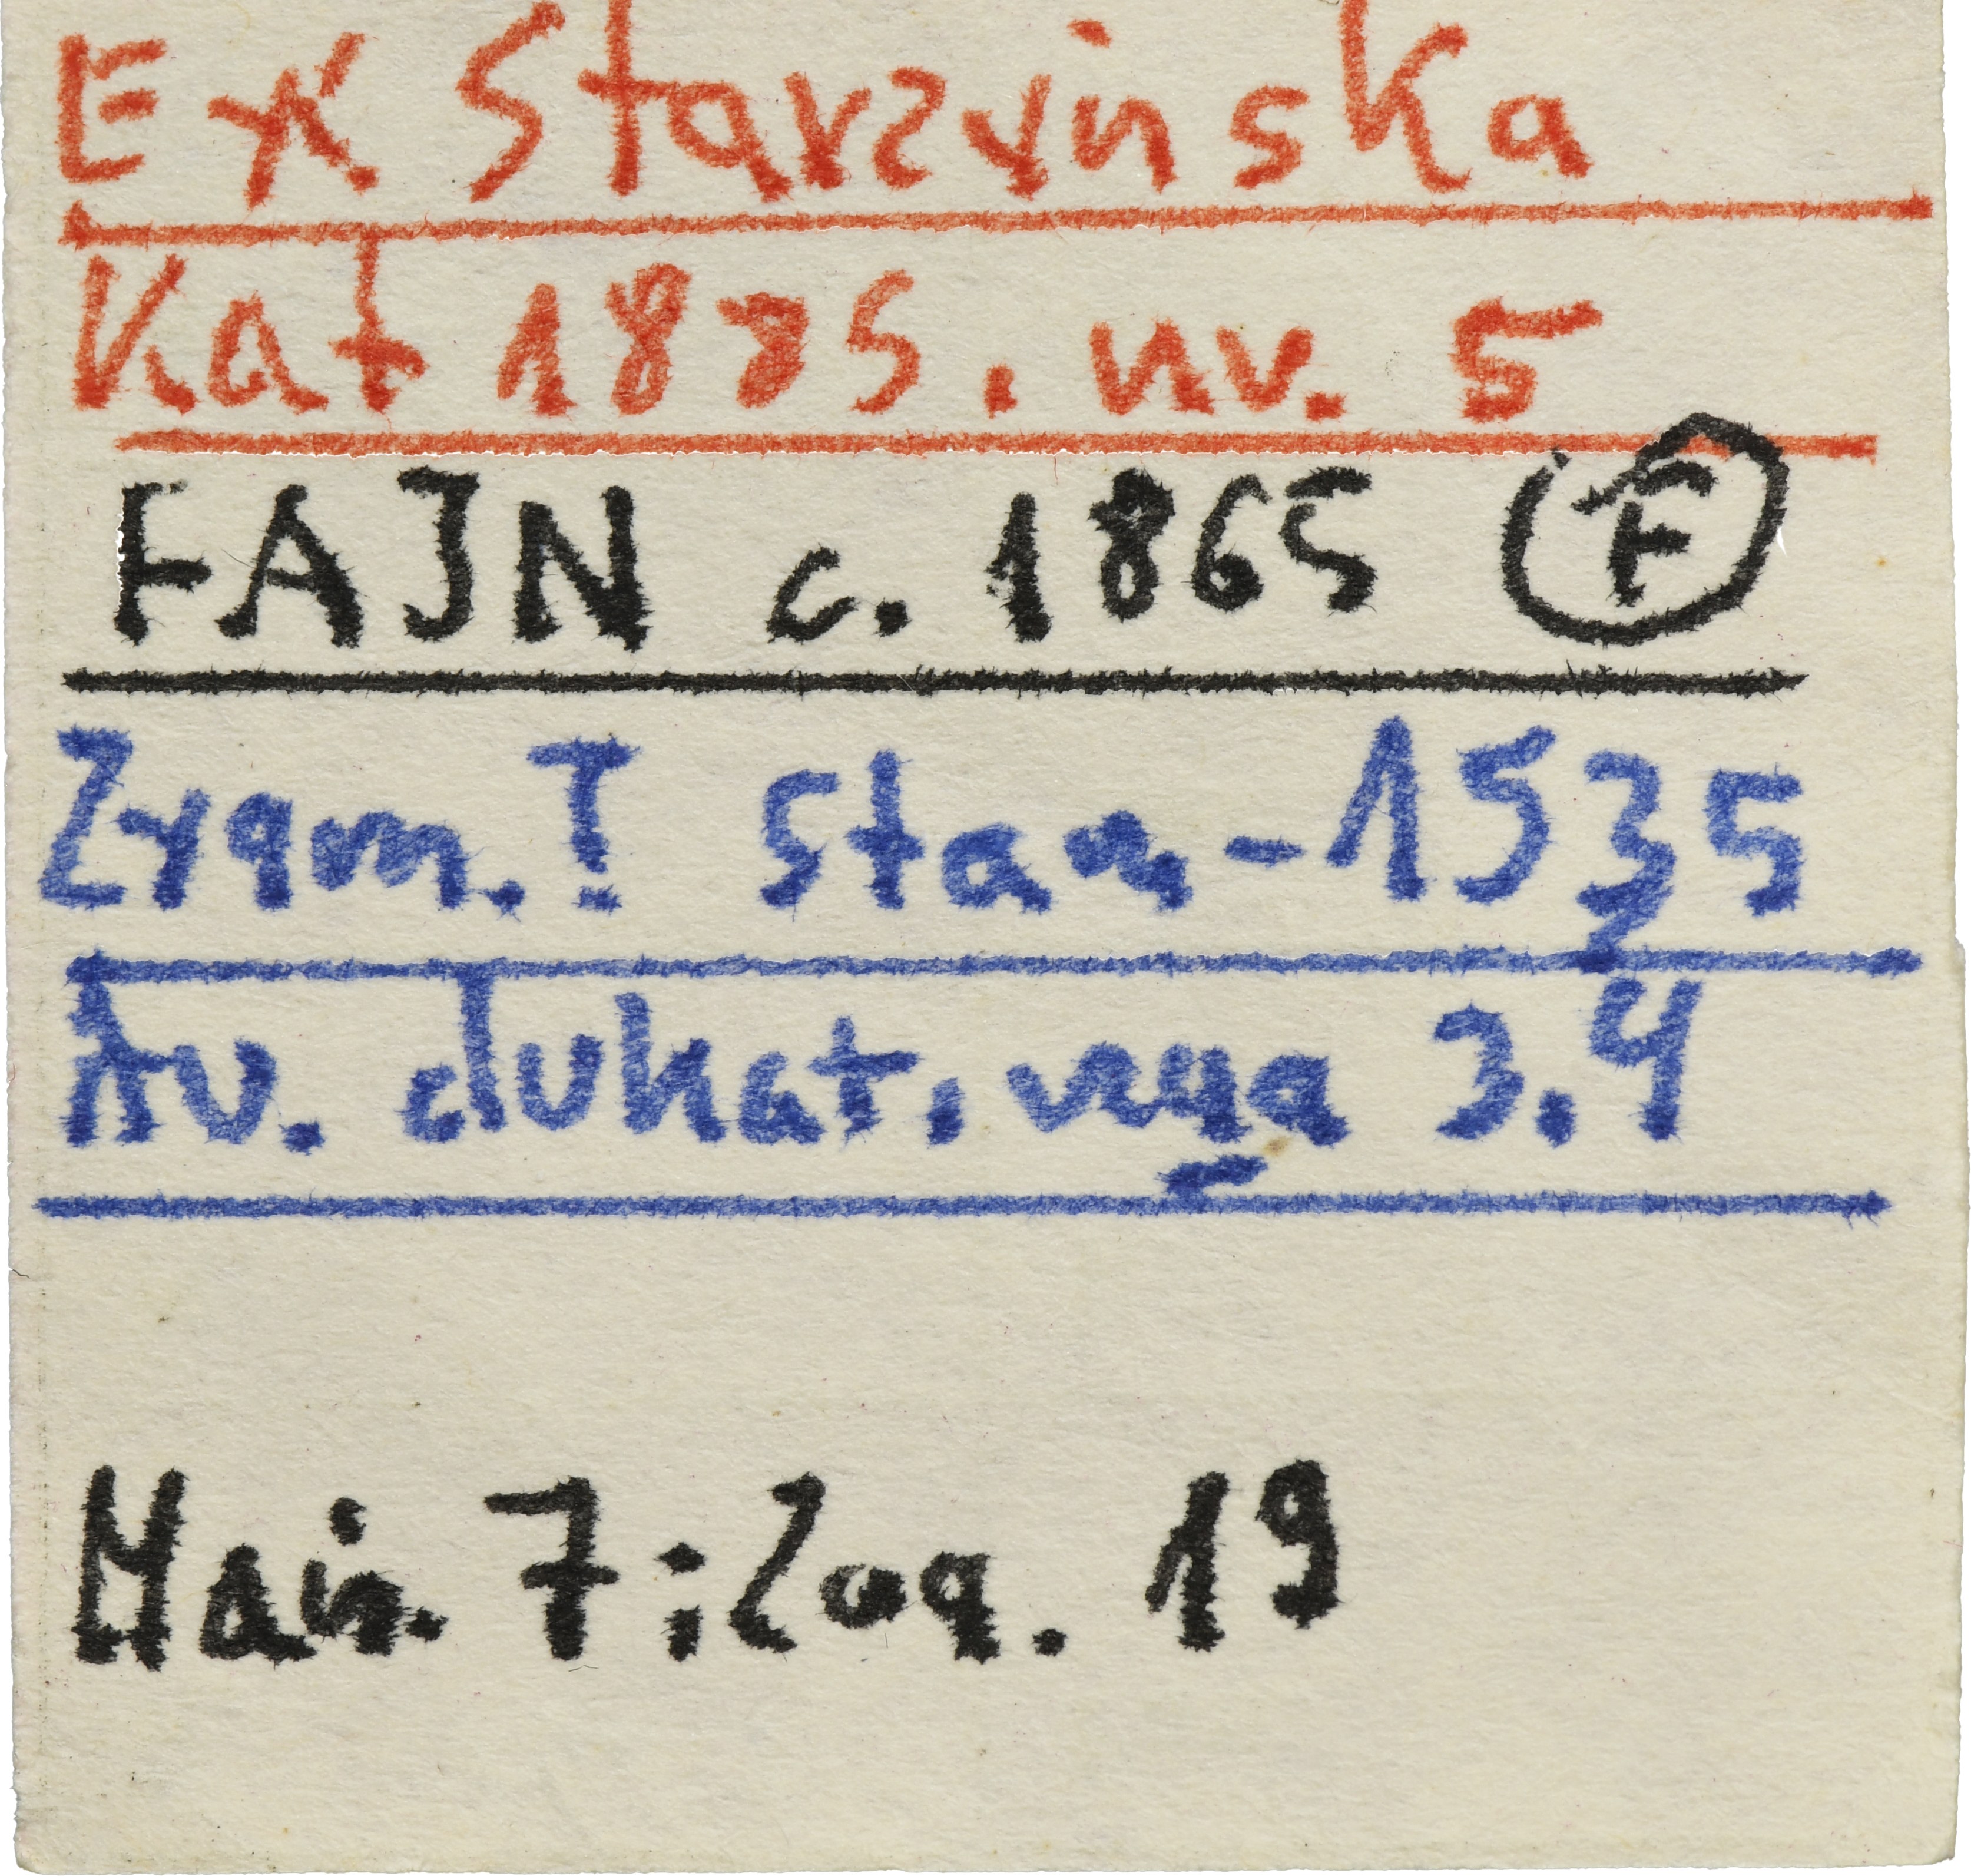 Ex Starzyńska
Kat 1875. nr. 5
FAJN c. 1865 F
Zygm. I Stary - 1535
Av. dukat, waga 3.4
Main. 7; Zag. 19